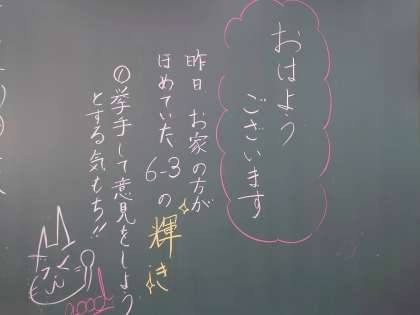 おはよう
ございます
昨日 お家の方が
ほめていた 6-3の輝き
①挙手して意見をしよう
とする気もち!!
good